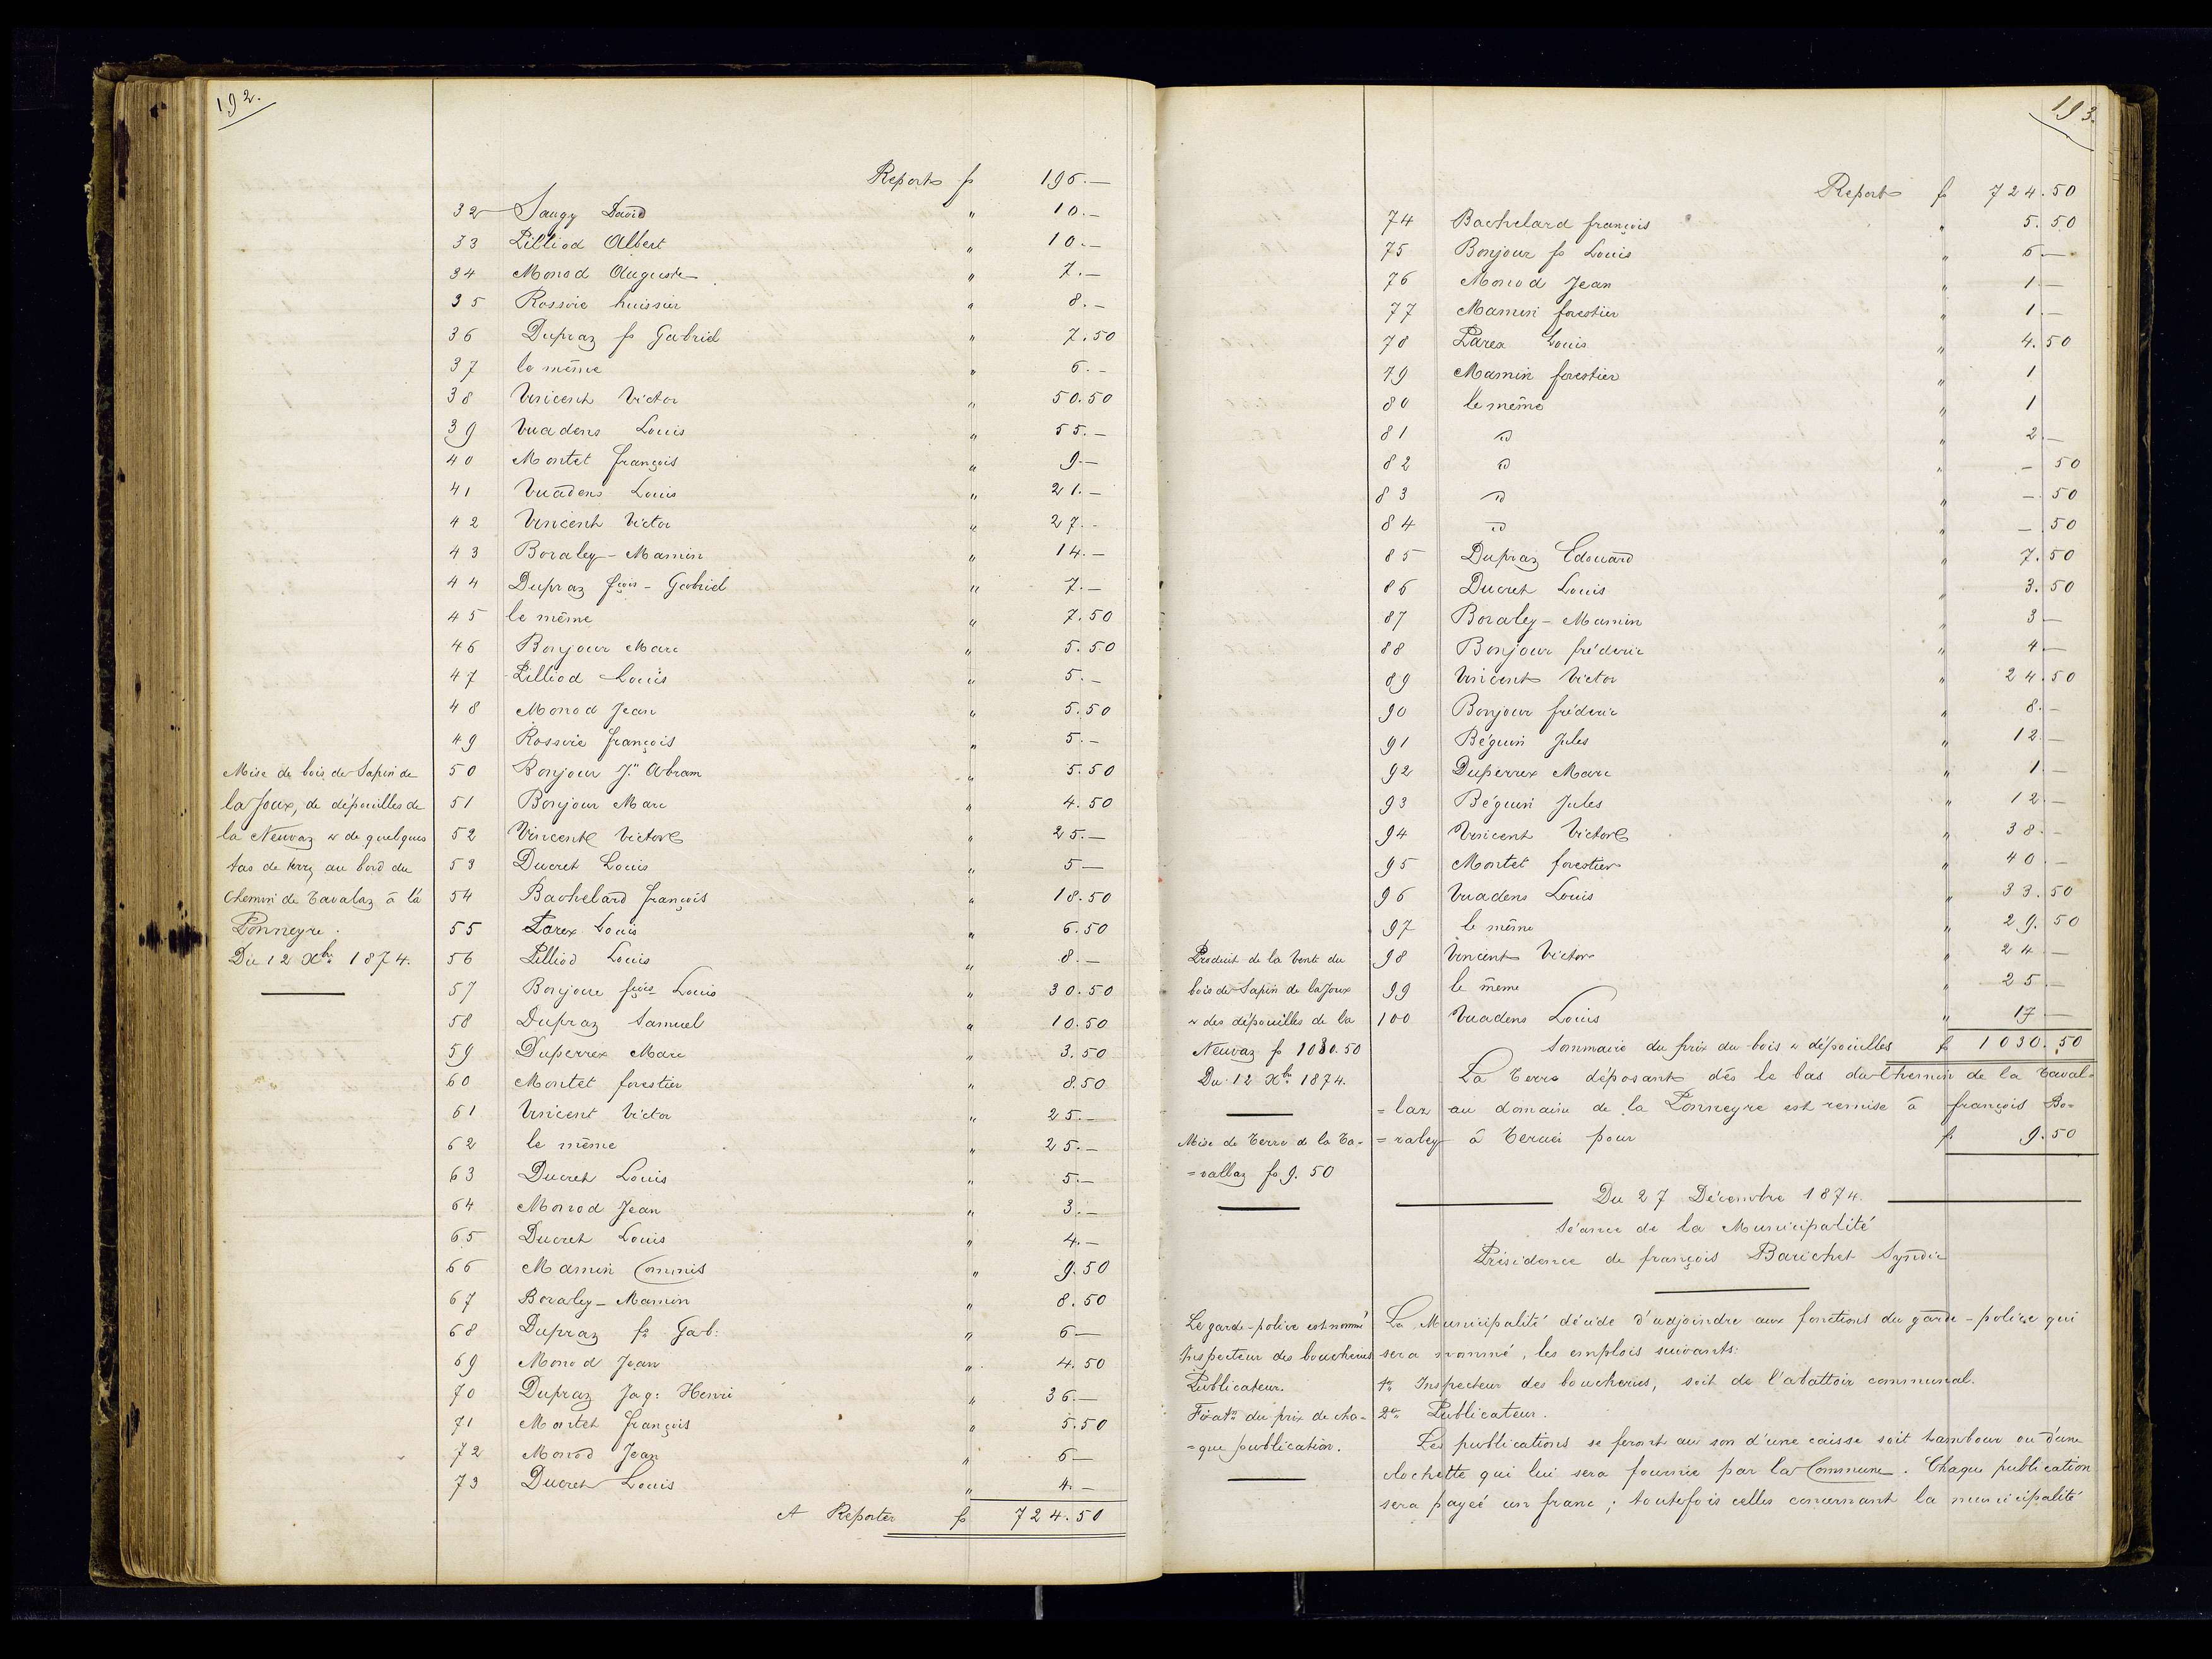 192.
Report fs 196.—
32 Saugy David " 10.—
33 Pilliod Albert " 10.—
34 Monod Auguste " 7.—
35 Rossire huissier " 8.—
36 Dupraz fs Gabriel " 7.50
37 le même " 6.—
38 Vincent Victor " 50.50
39 Vuadens Louis " 55.—
40 Montet françois " 9.—
41 Vuadens Louis " 21.—
42 Vincent Victor " 27.—
43 Boraley-Mamin " 14.—
44 Dupraz fçois-Gabriel " 7.—
45 le même " 7.50
46 Bonjour Marc " 5.50
47 Pilliod Louis " 5.—
48 Monod Jean " 5.50
49 Rossire françois " 5.—
Mise de bois de Sapin de
la Joux, de dépouilles de
la Neuvaz & de quelques
tas de terre au bord du
Chemin de Tavalaz à la
Ponneyre.
Du 12 Xbre 1874.
50 Bonjour Jn Abram " 5.50
51 Bonjour Marc " 4.50
52 Vincent Victor " 25.—
53 Ducret Louis " 5—
54 Bachelard françois " 18.50
55 Parex Louis " 6.50
56 Pilliod Louis " 8.—
57 Bonjour fçois Louis " 30.50
58 Dupraz Samuel " 10.50
59 Duperrex Marc " 3.50
60 Montet forestier " 8.50
61 Vincent Victor " 25.—
62 le même " 25.—
63 Ducret Louis " 5.—
64 Monod Jean " 3.—
65 Ducret Louis " 4.—
66 Mamin Commis " 9.50
67 Boraley-Mamin " 8.50
68 Dupraz fs Gab: " 6—
69 Monod Jean " 4.50
70 Dupraz Jaq: Henri " 36.—
71 Montet françois " 5.50
72 Monod Jean " 6—
73 Ducret Louis " 4.—
A Reporter fs 724.50
193.
Report fs 724.50
74 Bachelard françois " 5.50
75 Bonjour fs Louis " 6.—
76 Monod Jean " 1.—
77 Mamin forestier " 1.—
78 Parex Louis " 4.50
79 Mamin forestier " 1
80 le même " 1
81 id " 2.—
82 id " —50
83 id " —.50
84 id " —.50
85 Dupraz Edouard " 7.50
86 Ducret Louis " 3.50
87 Boraley-Mamin " 3—
88 Bonjour fréderic " 4.—
89 Vincent Victor " 24.50
90 Bonjour fréderic " 8.—
91 Béguin Jules " 12.—
92 Duperrex Marc " 1.—
93 Béguin Jules " 12.—
94 Vincent Victor " 38.—
95 Montet forestier " 40.—
96 Vuadens Louis " 33.50
97 le même " 29.50
98 Vincent Victor " 24.—
99 le même " 25.—
100 Vuadens Louis " 17—
Produit de la vente du
bois de Sapin de la Joux
& des dépouilles de la
Neuvaz fs 1030.50
Du 12 Xbre 1874.
Sommaire du prix du bois & dépouilles fs 1030.50
La Terre déposant dès le bas du Chemin de la Taval=
=laz au domaine de la Ponneyre est remise à françois Bo=
=raley à Teruei pour fs 9.50
Mise de Terre de la Ta-
=vallaz fs 9.50
Du 27 Décembre 1874.
Séance de la Municipalité
Présidence de françois Barichet Syndic
Le garde-police est nommé
Inspecteur des boucheries
Publicateur.
Fixatn du prix de cha-
=que publication.
La Municipalité décide d'adjoindre aux fonctions du garde-police qui
sera nommé, les emplois suivants:
1o Inspecteur des boucheries, soit de l'abattoir communal.
2o Publicateur.
Les publications se feront au son d'une caisse soit tambour ou d'une
clochette qui lui sera fournie par la Commune. Chaque publication
sera payée un franc; toutefois celles concernant la municipalité